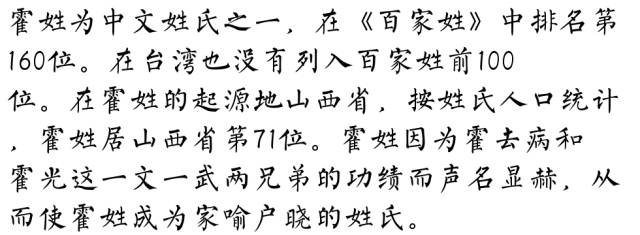 霍姓为中文姓氏之一，在《百家姓》中排名第
160位。在台湾也没有列入百家姓前100
位。在霍姓的起源地山西省，按姓氏人口统计
，霍姓居山西省第71位。霍姓因为霍去病和
霍光这一文一武两兄弟的功绩而声名显赫，从
而使霍姓成为家喻户晓的姓氏。